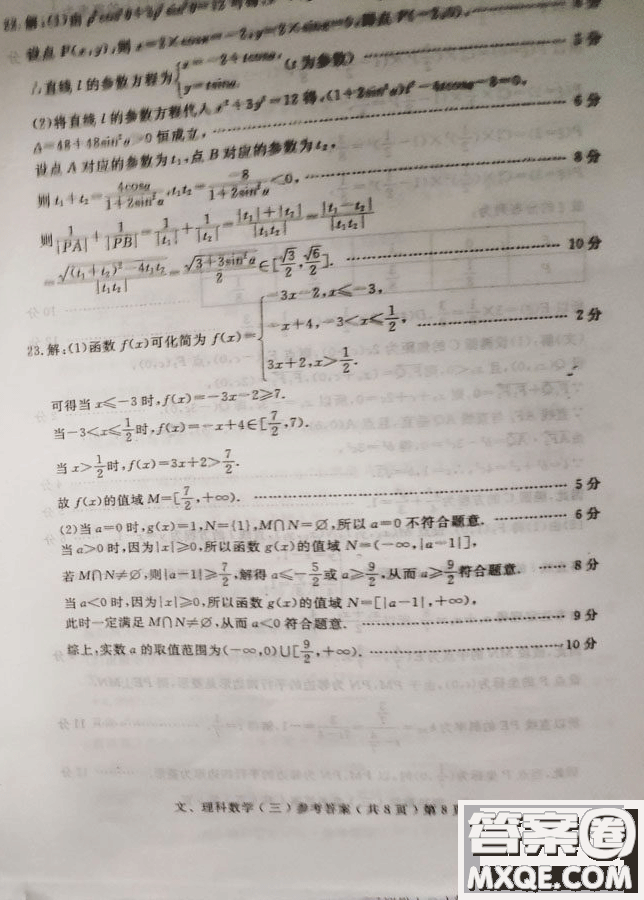 设点 P(x,y),则
∴直线 l 的参数方程为{x=-2+tcosα, y=tsinα. (t 为参数) …… 5 分
(2)将直线 l 的参数方程代入 x²+3y²=12 得,(1+2sin²α)t²-4tcosα-8=0,
Δ=48+48sin²α>0 恒成立, …… 6 分
设点 A 对应的参数为 t₁,点 B 对应的参数为 t₂,
则 t₁+t₂=4cosα/(1+2sin²α),t₁t₂=-8/(1+2sin²α)<0, …… 8 分
则 1/|PA|+1/|PB|=1/|t₁|+1/|t₂|=(|t₁|+|t₂|)/|t₁t₂|=|t₁-t₂|/|t₁t₂|
=√((t₁+t₂)²-4t₁t₂)/|t₁t₂|=√(3+3sin²α)/2∈[√3/2,√6/2]. …… 10 分
23.解:(1)函数 f(x)可化简为 f(x)={-3x-2,x≤-3,
-x+4,-3<x≤1/2, …… 2 分
3x+2,x>1/2.
可得当 x≤-3 时,f(x)=-3x-2≥7.
当-3<x≤1/2时,f(x)=-x+4∈[7/2,7).
当 x>1/2时,f(x)=3x+2>7/2.
故 f(x)的值域 M=[7/2,+∞). …… 5 分
(2)当 a=0 时,g(x)=1,N={1},M∩N=∅,所以 a=0 不符合题意. …… 6 分
当 a>0 时,因为|x|≥0,所以函数 g(x)的值域 N=(-∞,|a-1|],
若 M∩N≠∅,则|a-1|≥7/2,解得 a≤-5/2或 a≥9/2,从而 a≥9/2符合题意. …… 8 分
当 a<0 时,因为|x|≥0,所以函数 g(x)的值域 N=[|a-1|,+∞),
此时一定满足 M∩N≠∅,从而 a<0 符合题意. …… 9 分
综上,实数 a 的取值范围为(-∞,0)∪[9/2,+∞). …… 10 分
文、理科数学(三)参考答案(共 8 页)第 8
答案圈
MXQE.COM